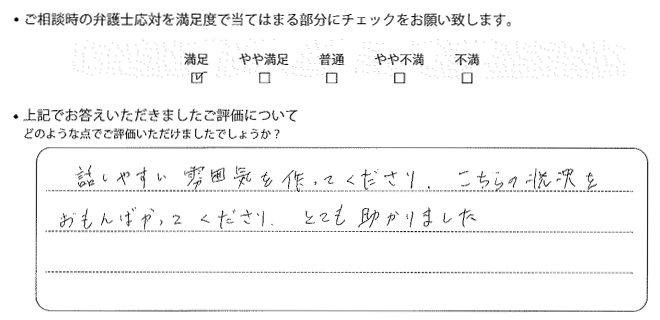 • ご相談時の弁護士応対を満足度で当てはまる部分にチェックをお願い致します。
満足 やや満足 普通 やや不満 不満
☑ □ □ □ □
• 上記でお答えいただきましたご評価について
どのような点でご評価いただけましたでしょうか？
話しやすい雰囲気を作ってくださり、こちらの状況を
おもんばかってくださり、とても助かりました